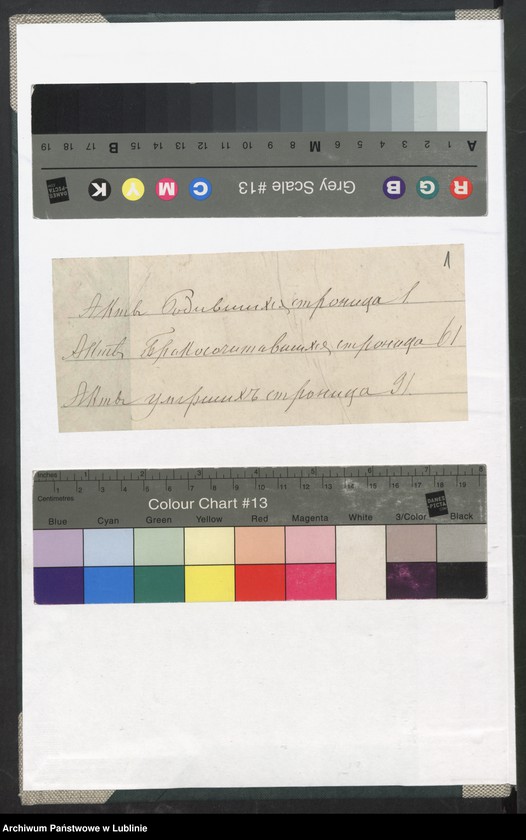 19 18 17 B 15 14 13 12 11 10 9 8 M 6 5 4 3 2 1 A
Grey Scale #13
R G B C M Y K
DANES PICTA
1
Акты Родившихся строница 1
Актъ Бракосочитавшихся строница 61
Акты умершихъ строница 91
Inches 1 2 3 4 5 6 7 8
Centimetres 1 2 3 4 5 6 7 8 9 10 11 12 13 14 15 16 17 18 19
Colour Chart #13
DANES PICTA
Blue Cyan Green Yellow Red Magenta White 3/Color Black
Archiwum Państwowe w Lublinie